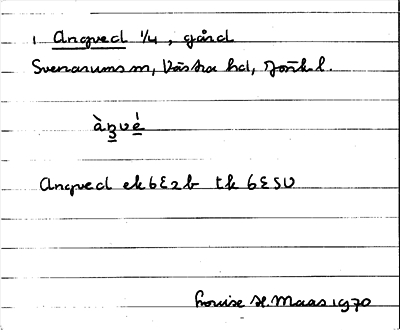 1 Angved 1/4, gård
Svenarums sn, Västra hd, Jönk l.
àŋvé
Angved ek 6E2b tk 6E5U
Louise H. Maas 1970